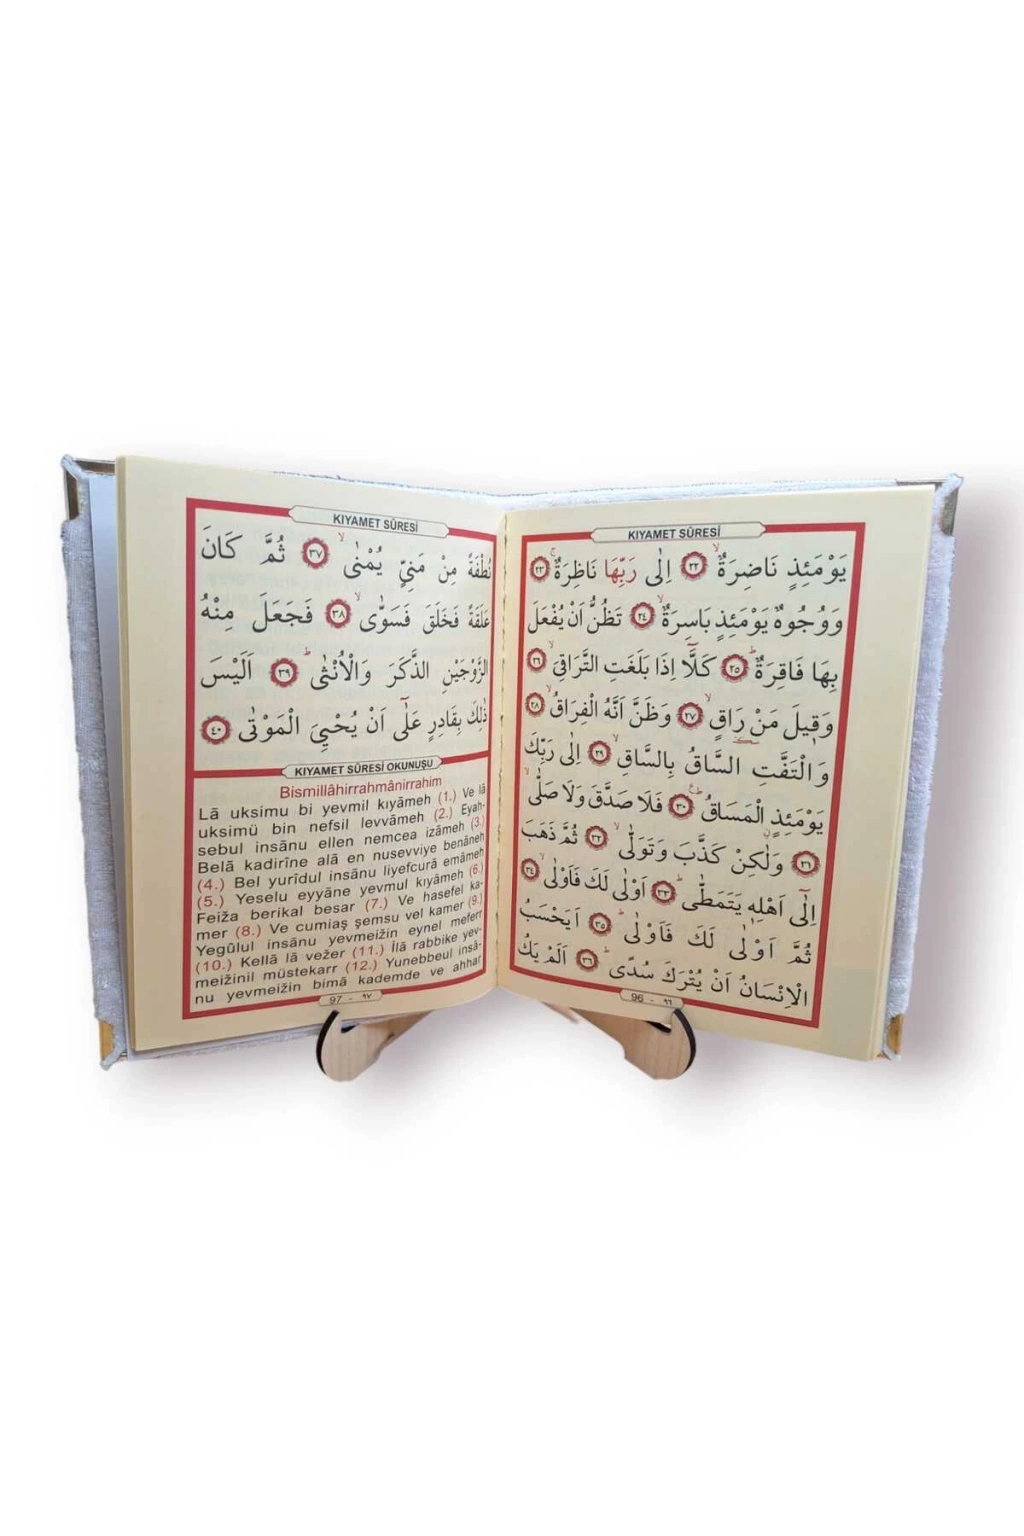 KIYAMET SÛRESİ
يَوْمَئِذٍ نَاضِرَةٌ ٢٢ اِلٰى رَبِّهَا نَاظِرَةٌ ٢٣
وَوُجُوهٌ يَوْمَئِذٍ بَاسِرَةٌ ٢٤ تَظُنُّ اَنْ يُفْعَلَ
بِهَا فَاقِرَةٌ ٢٥ كَلَّٓا اِذَا بَلَغَتِ التَّرَاقِىَ ٢٦
وَقِيلَ مَنْ رَاقٍ ٢٧ وَظَنَّ اَنَّهُ الْفِرَاقُ ٢٨
وَالْتَفَّتِ السَّاقُ بِالسَّاقِ ٢٩ اِلٰى رَبِّكَ
يَوْمَئِذٍ الْمَسَاقُ ٣٠ فَلَا صَدَّقَ وَلَا صَلّٰى
٣١ وَلٰكِنْ كَذَّبَ وَتَوَلّٰى ٣٢ ثُمَّ ذَهَبَ
اِلٰٓى اَهْلِهِ يَتَمَطّٰى ٣٣ اَوْلٰى لَكَ فَاَوْلٰى ٣٤
ثُمَّ اَوْلٰى لَكَ فَاَوْلٰى ٣٥ اَيَحْسَبُ
الْاِنْسَانُ اَنْ يُتْرَكَ سُدًى ٣٦ اَلَمْ يَكُ
96 - ٩٦
KIYAMET SÛRESİ
نُطْفَةً مِنْ مَنِىٍّ يُمْنٰى ٣٧ ثُمَّ كَانَ
عَلَقَةً فَخَلَقَ فَسَوّٰى ٣٨ فَجَعَلَ مِنْهُ
الزَّوْجَيْنِ الذَّكَرَ وَالْاُنْثٰى ٣٩ اَلَيْسَ
ذٰلِكَ بِقَادِرٍ عَلٰٓى اَنْ يُحْيِىَ الْمَوْتٰى ٤٠
KIYAMET SÛRESİ OKUNUŞU
Bismillâhirrahmânirrahim
Lâ uksimu bi yevmil kıyâmeh (1.) Ve lâ
uksimü bin nefsil levvâmeh (2.) Eyah-
sebul insânu ellen nemcea izâmeh (3.)
Belâ kadirîne alâ en nusevviye benâneh
(4.) Bel yurîdul insânu liyefcurâ emâmeh
(5.) Yeselu eyyâne yevmul kıyâmeh (6.)
Feiža berikal besar (7.) Ve hasefel ka-
mer (8.) Ve cumiaş şemsu vel kamer (9.)
Yegûlul insânu yevmeižin eynel meferr
(10.) Kellâ lâ vežer (11.) İlâ rabbike yev-
meižinil müstekarr (12.) Yunebbeul insâ-
nu yevmeižin bimâ kademde ve ahhar
97 - ٩٧